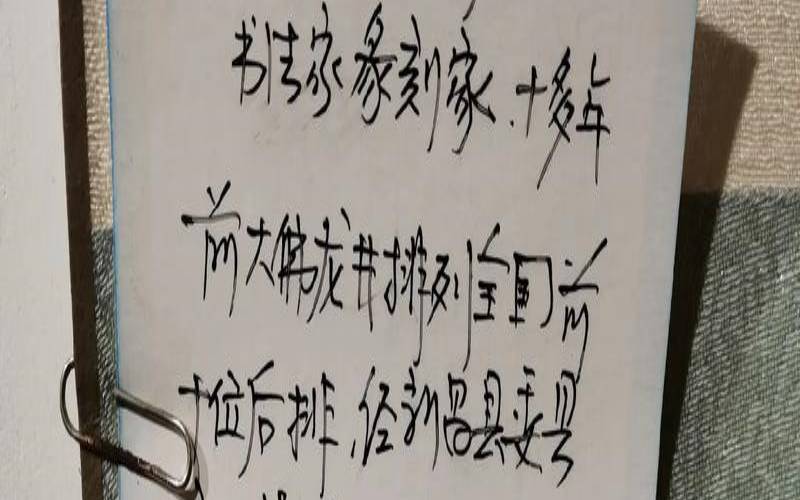 书法家篆刻家.十多年
前大佛龙井排列全国前
十位后排,经新昌县委县